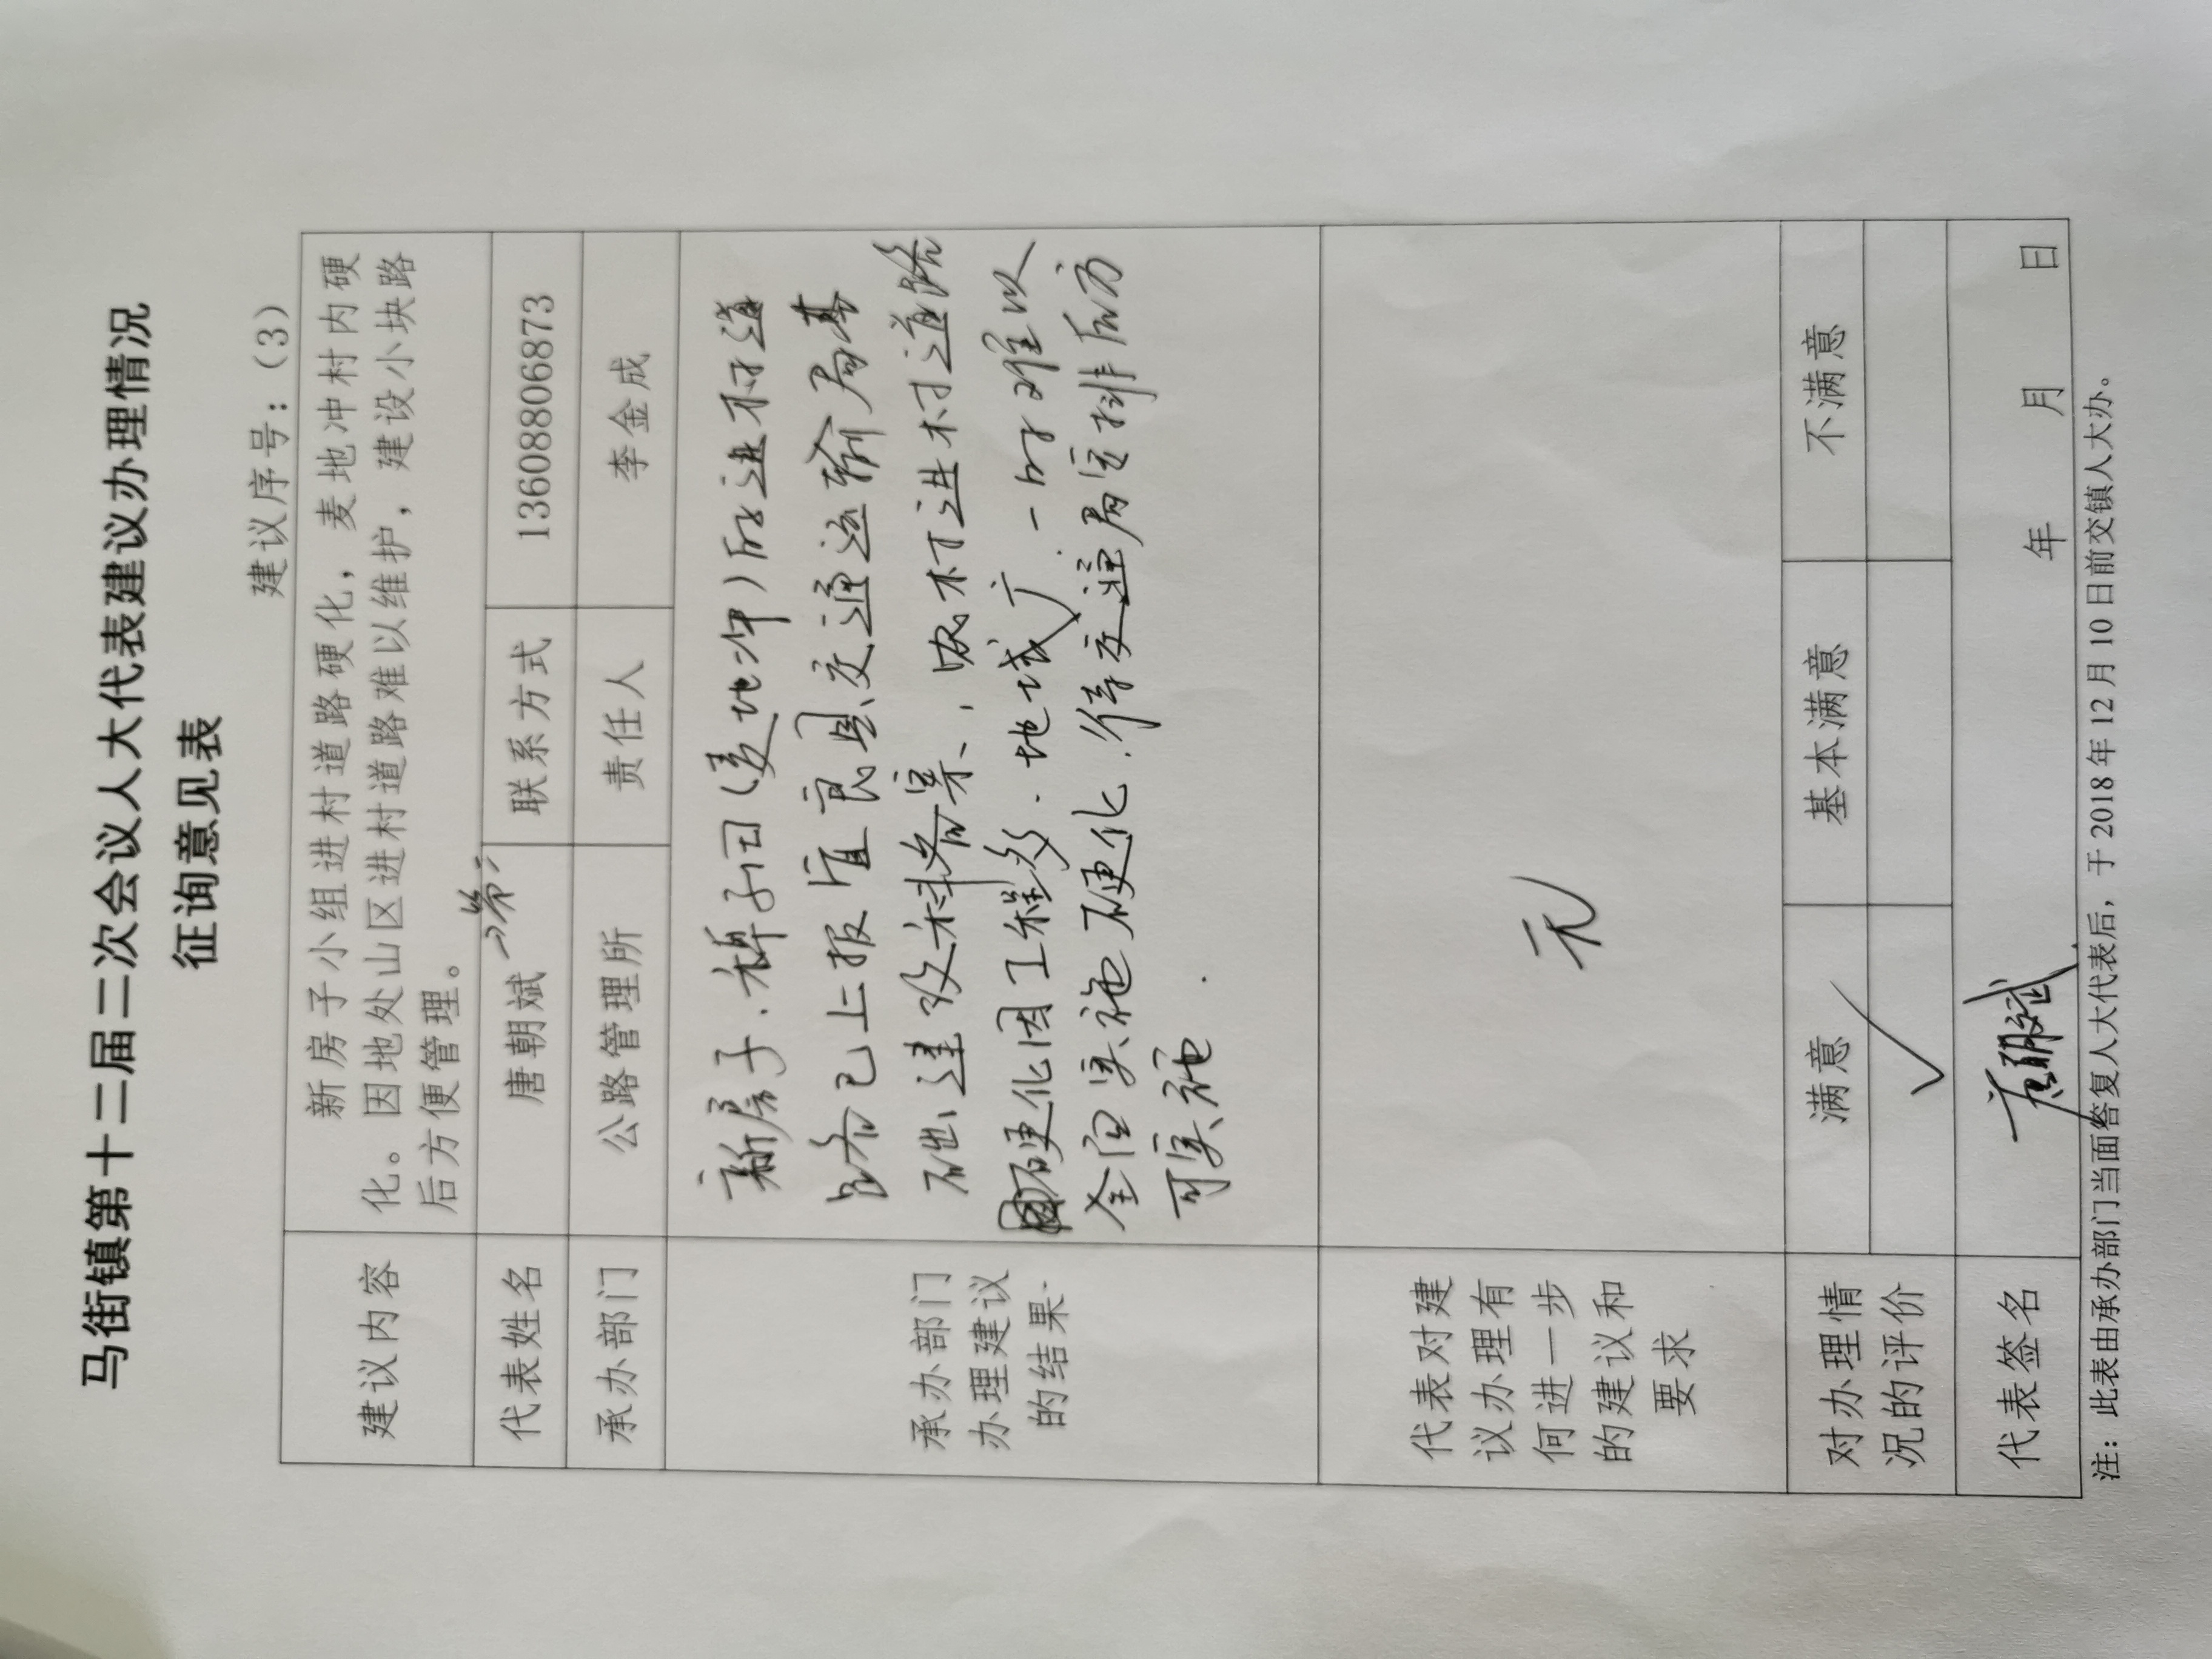 马街镇第十二届二次会议人大代表建议办理情况
征询意见表
建议序号：（3）
建议内容
新房子小组进村道路硬化，麦地冲村内硬
化。因地处山区进村道路难以维护，建设小块路
后方便管理。
代表姓名 唐朝斌 联系方式 13608806873
承办部门 公路管理所 责任人 李金成
承办部门
办理建议
的结果
新房子、稗子田（麦地冲）的进村道
路已上报宜良县交通运输局基
础建设科备案，农村进村道路
硬化因工程多、地域广，一时难以
全面实施硬化，待交通局安排后方
可实施.
代表对建
议办理有
何进一步
的建议和
要求
无
对办理情
况的评价
满意 基本满意 不满意
✓
代表签名 唐朝斌 年 月 日
注：此表由承办部门当面答复人大代表后，于 2018 年 12 月 10 日前交镇人大办。